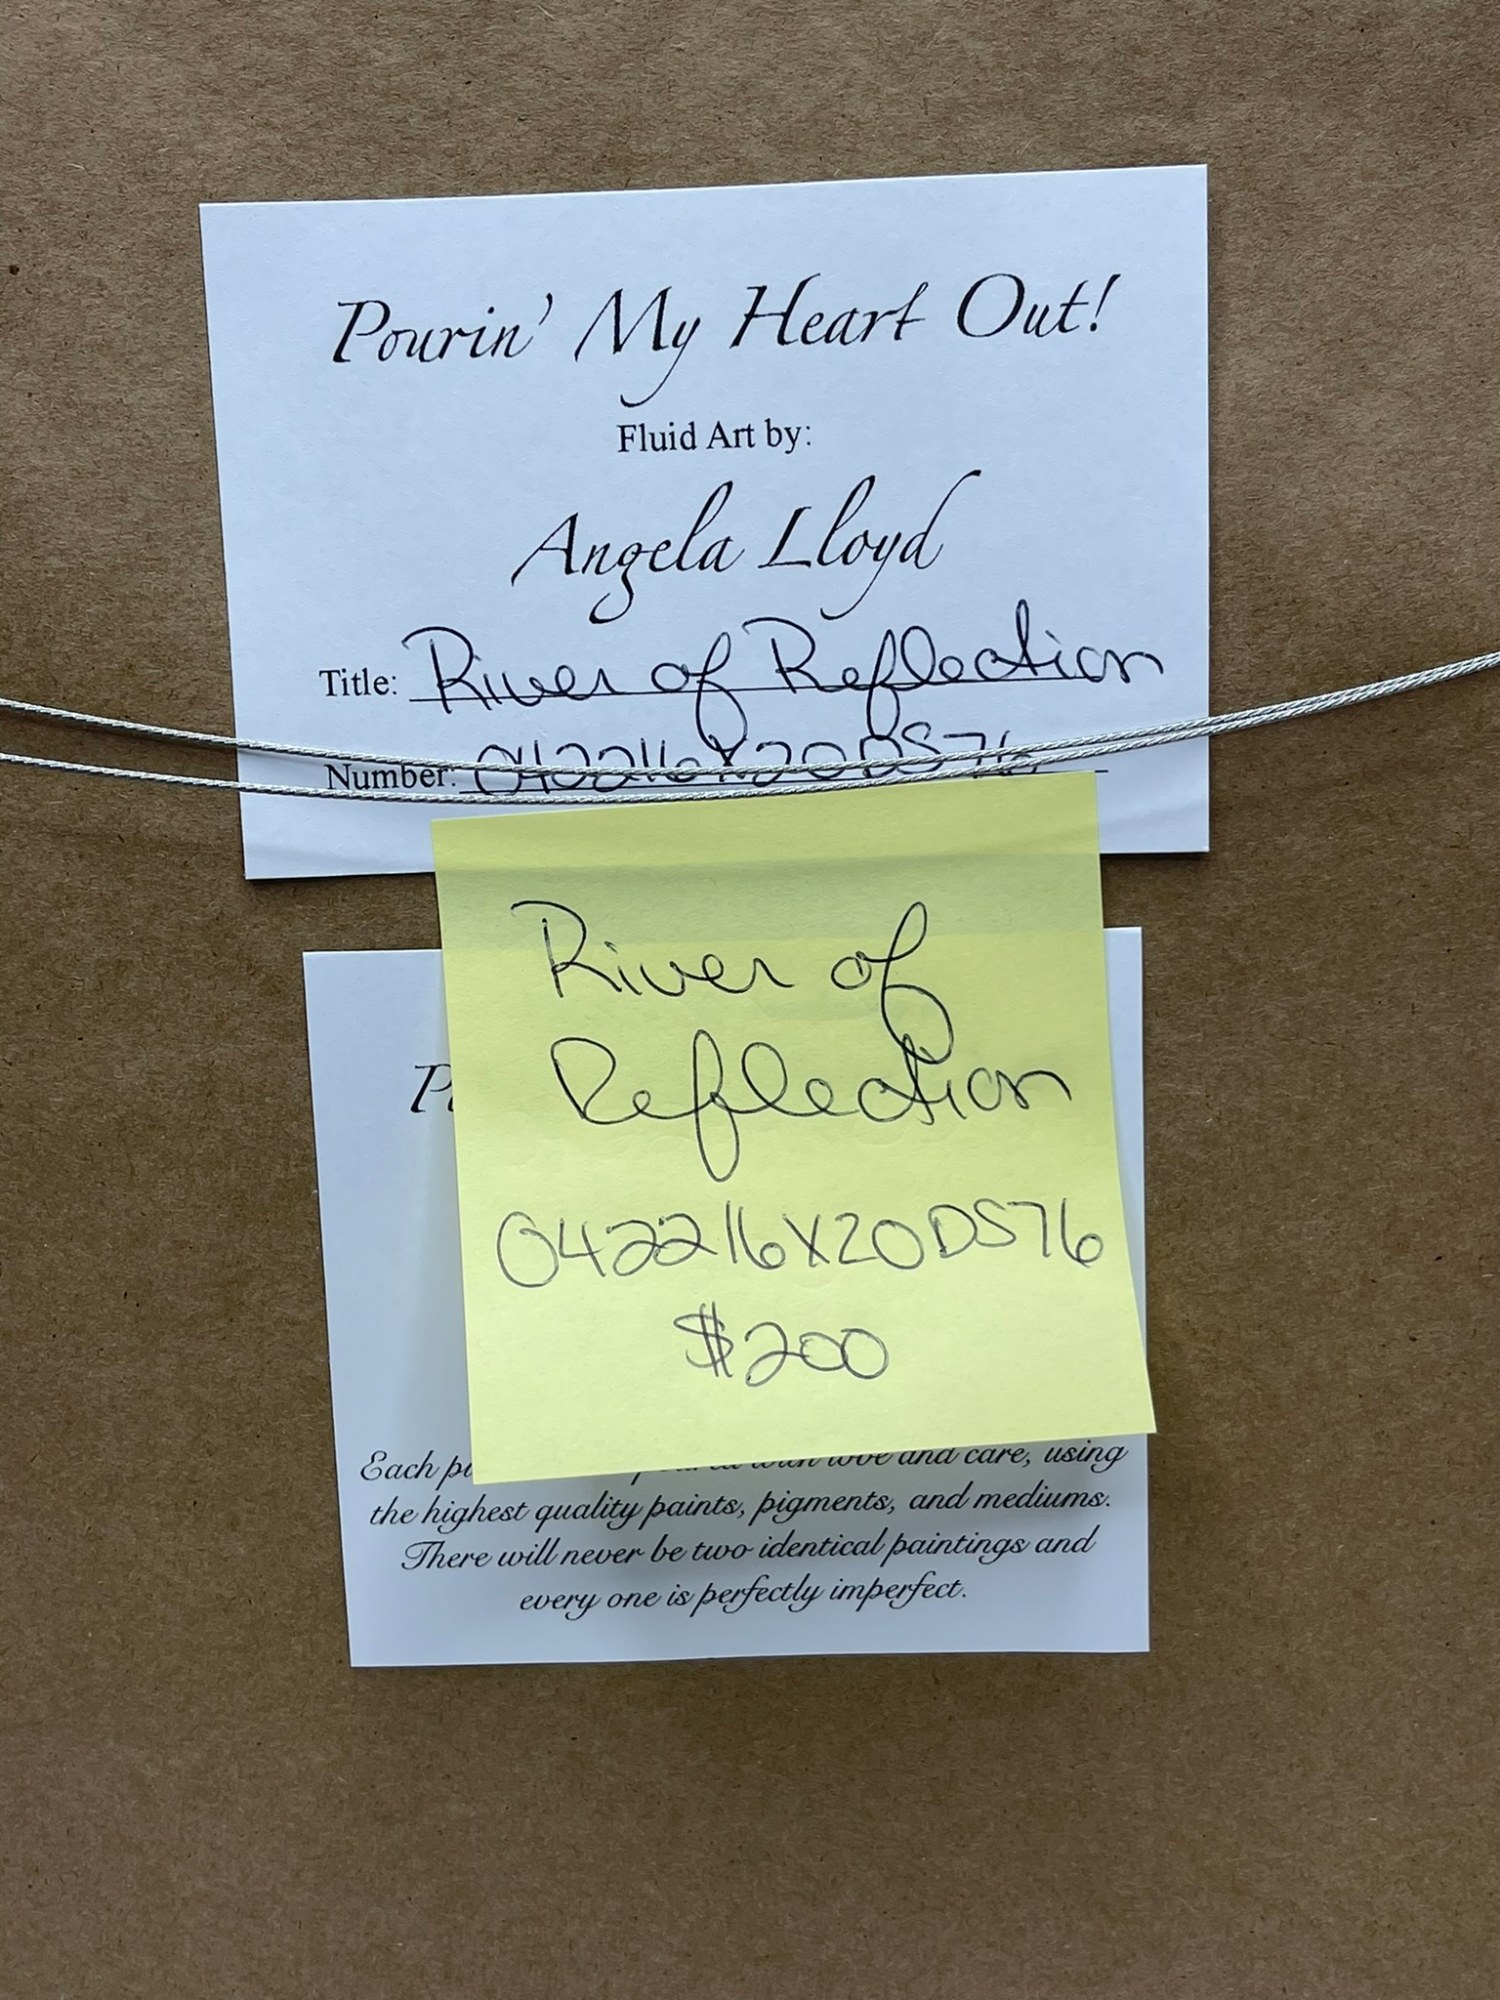 Pourin' My Heart Out!
Fluid Art by:
Angela Lloyd
Title: River of Reflection
Number: 042216X20DS76
River of
Reflection
042216X20DS76
$200
Each with love and care, using
the highest quality paints, pigments, and mediums.
There will never be two identical paintings and
every one is perfectly imperfect.